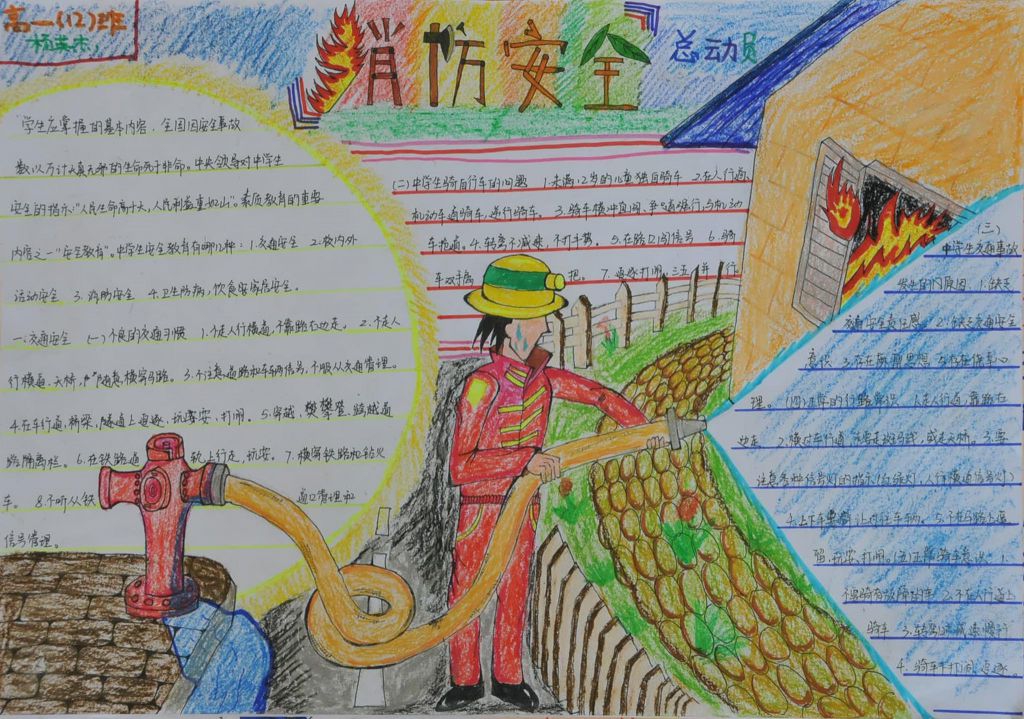 高一(12)班
消防安全
总动员
学生应掌握的基本内容,全国因安全事故
数以万计天真无邪的生命死于非命。中央领导对中学生
安全的指示:"人民生命高于天,人民利益重如山"。素质教育的重要
内容之一"安全教育"。中学生安全教育有哪几种:1.交通安全 2.校内外
活动安全 3.消防安全 4.卫生防病,饮食家居安全。
一:交通安全 (一)不良的交通习惯 1.不走人行横道,不靠路右边走。2.不走人
行横道、天桥,随意横穿马路。3.不注意道路和车辆信号,不服从交通管理。
4.在车行道,桥梁,隧道上追逐、玩耍、打闹。5.穿越、攀登、跨越道
路隔离栏。6.在铁路道 轨上行走、玩耍。7.横穿铁路和钻火
车。8.不听从铁 道口管理和
信号管理。
(二)中学生骑自行车的问题 1.未满12岁的儿童独自骑车 2.在人行道、
机动车道骑车,逆行骑车。3.骑车横冲直闯、争道强行,与机动
车抢道。4.转弯不减速,不打手势。5.在路口闯信号 6.骑
车双手离 把。7.追逐打闹,三五 并 行
(三)
中学生交通事故
发生的内原因:1.缺乏
交通安全责任感 2.缺乏交通安全
意识 3.存在麻痹思想 5.存在侥幸心
理。(四)正常的行路常识 1.走人行道,靠路右
边走 2.横过车行道 斑马线,或走天桥。3.要
注意各种信号灯的指示(红绿灯,人行横道信号灯)
不在马路上追
玩耍、打闹。(五) 骑车意识 1.
不要骑有故障的车 2.不在人行道上
骑车 3.转弯时减速慢行
4.骑车不打闹、追逐